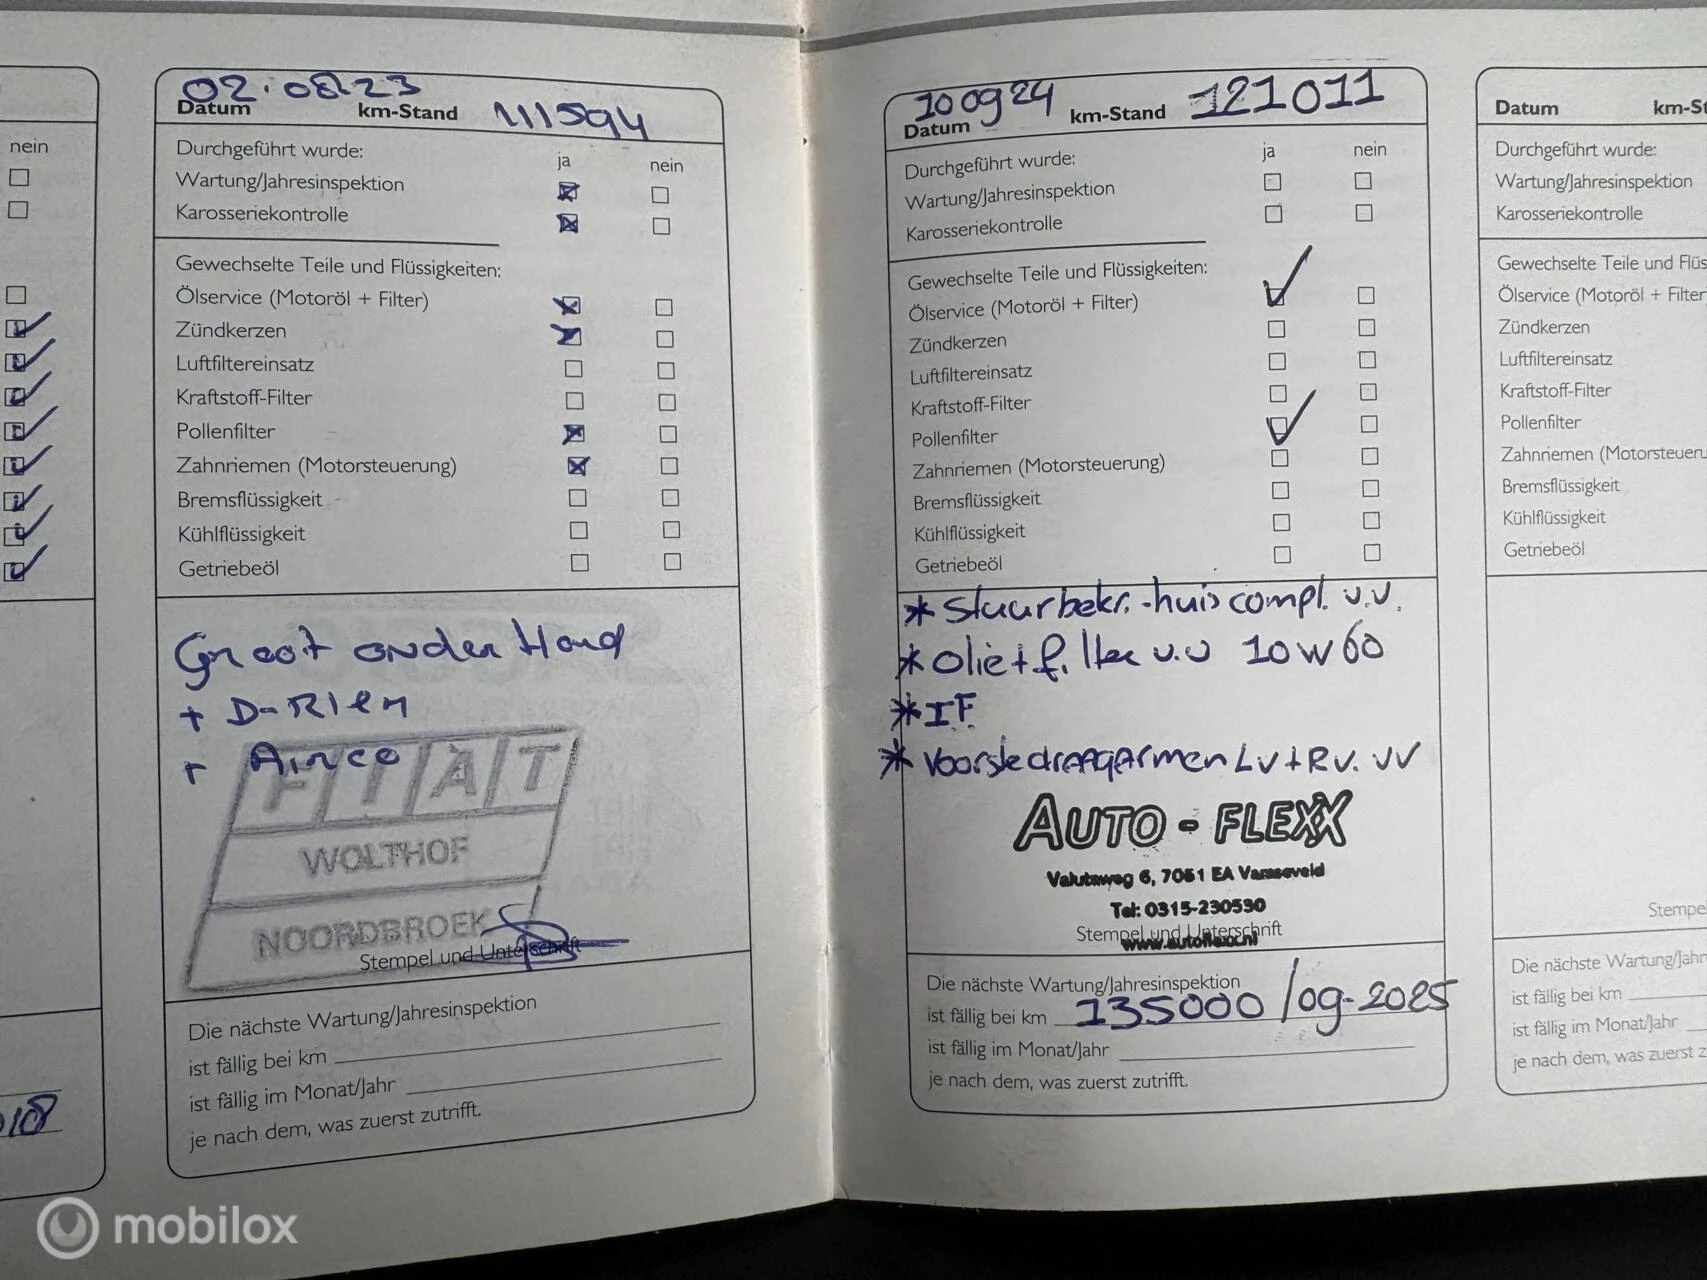 nein
018
02.08.23
Datum km-Stand 111594
Durchgeführt wurde: ja nein
Wartung/Jahresinspektion
Karosseriekontrolle
Gewechselte Teile und Flüssigkeiten:
Ölservice (Motoröl + Filter)
Zündkerzen
Luftfiltereinsatz
Kraftstoff-Filter
Pollenfilter
Zahnriemen (Motorsteuerung)
Bremsflüssigkeit
Kühlflüssigkeit
Getriebeöl
Groot onder Houd
+ D-Riem
+ Airco
FIAT
WOLTHOF
NOORDBROEK
Stempel und Unterschrift
Die nächste Wartung/Jahresinspektion
ist fällig bei km
ist fällig im Monat/Jahr
je nach dem, was zuerst zutrifft.
10 09 24 121011
Datum km-Stand
Durchgeführt wurde: ja nein
Wartung/Jahresinspektion
Karosseriekontrolle
Gewechselte Teile und Flüssigkeiten:
Ölservice (Motoröl + Filter)
Zündkerzen
Luftfiltereinsatz
Kraftstoff-Filter
Pollenfilter
Zahnriemen (Motorsteuerung)
Bremsflüssigkeit
Kühlflüssigkeit
Getriebeöl
* Stuurbekr.-huis compl. v.v.
* Olie + filter v.v 10W60
* IF
* Voorste draagarmen Lv + Rv. vv
AUTO - FLEXX
Valutaweg 6, 7051 EA Varsseveld
Tel: 0315-230590
Stempel und Unterschrift
www.autoflexx.nl
Die nächste Wartung/Jahresinspektion
ist fällig bei km 135000 /09-2025
ist fällig im Monat/Jahr
je nach dem, was zuerst zutrifft.
Datum km-St
Durchgeführt wurde:
Wartung/Jahresinspektion
Karosseriekontrolle
Gewechselte Teile und Flüs
Ölservice (Motoröl + Filter
Zündkerzen
Luftfiltereinsatz
Kraftstoff-Filter
Pollenfilter
Zahnriemen (Motorsteueru
Bremsflüssigkeit
Kühlflüssigkeit
Getriebeöl
Stempel
Die nächste Wartung/Jahr
ist fällig bei km
ist fällig im Monat/Jahr
je nach dem, was zuerst z
mobilox